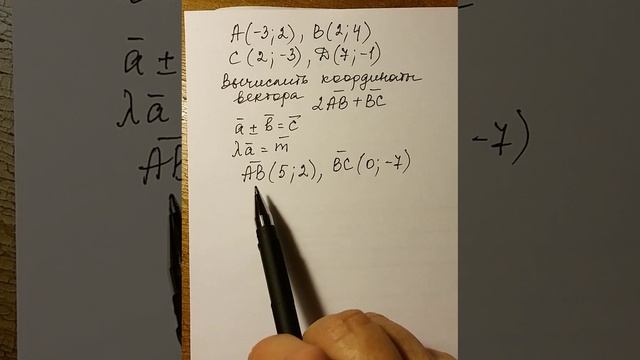 A(-3;2), B(2;4)
C(2;-3), D(7;-1)
Вычислить координаты
вектора 2A̅B̅ + B̅C̅
a̅ ± b̅ = c̅
λa̅ = m̅
A̅B̅(5;2), B̅C̅(0;-7)